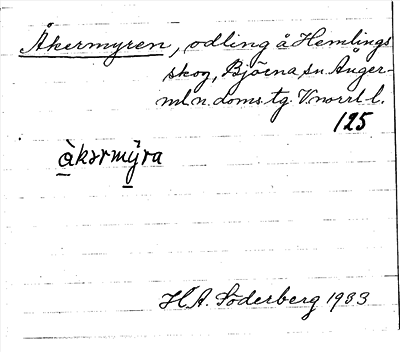 Åkermyren, odling å Hemlings
skog, Björna sn. Ånger-
ml. n. doms. tg. V.norrl. l.
125
àkərmỳra
H.A. Söderberg 1933